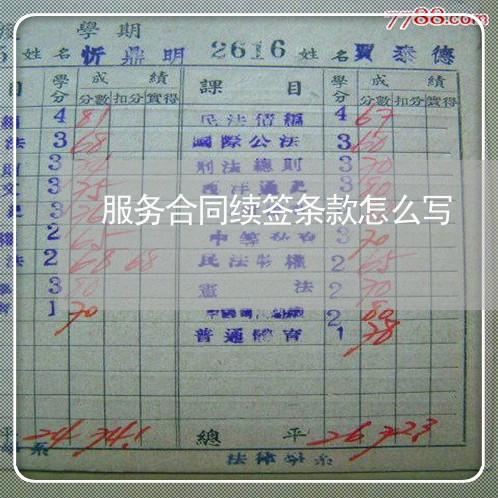 7788.com
學期
5 姓名 忻鼎明 2616 姓名 賈泰德
目 學分 成績 課目 學分 成績
分數 扣分 實得 分數 扣分 實得
4 81 民法債編 4 67
法 3 68 國際公法 3 60
3 刑法總則 3 70
3 75 西洋通史 3 80
服务合同续签条款怎么写
2 65 3 70
法 2 68 68 民法物權 2 65
3 80 憲法 2 70
1 70 2 80
普通體育 1 78
平 24 74.1 總平 26 72.3
系 法律學系